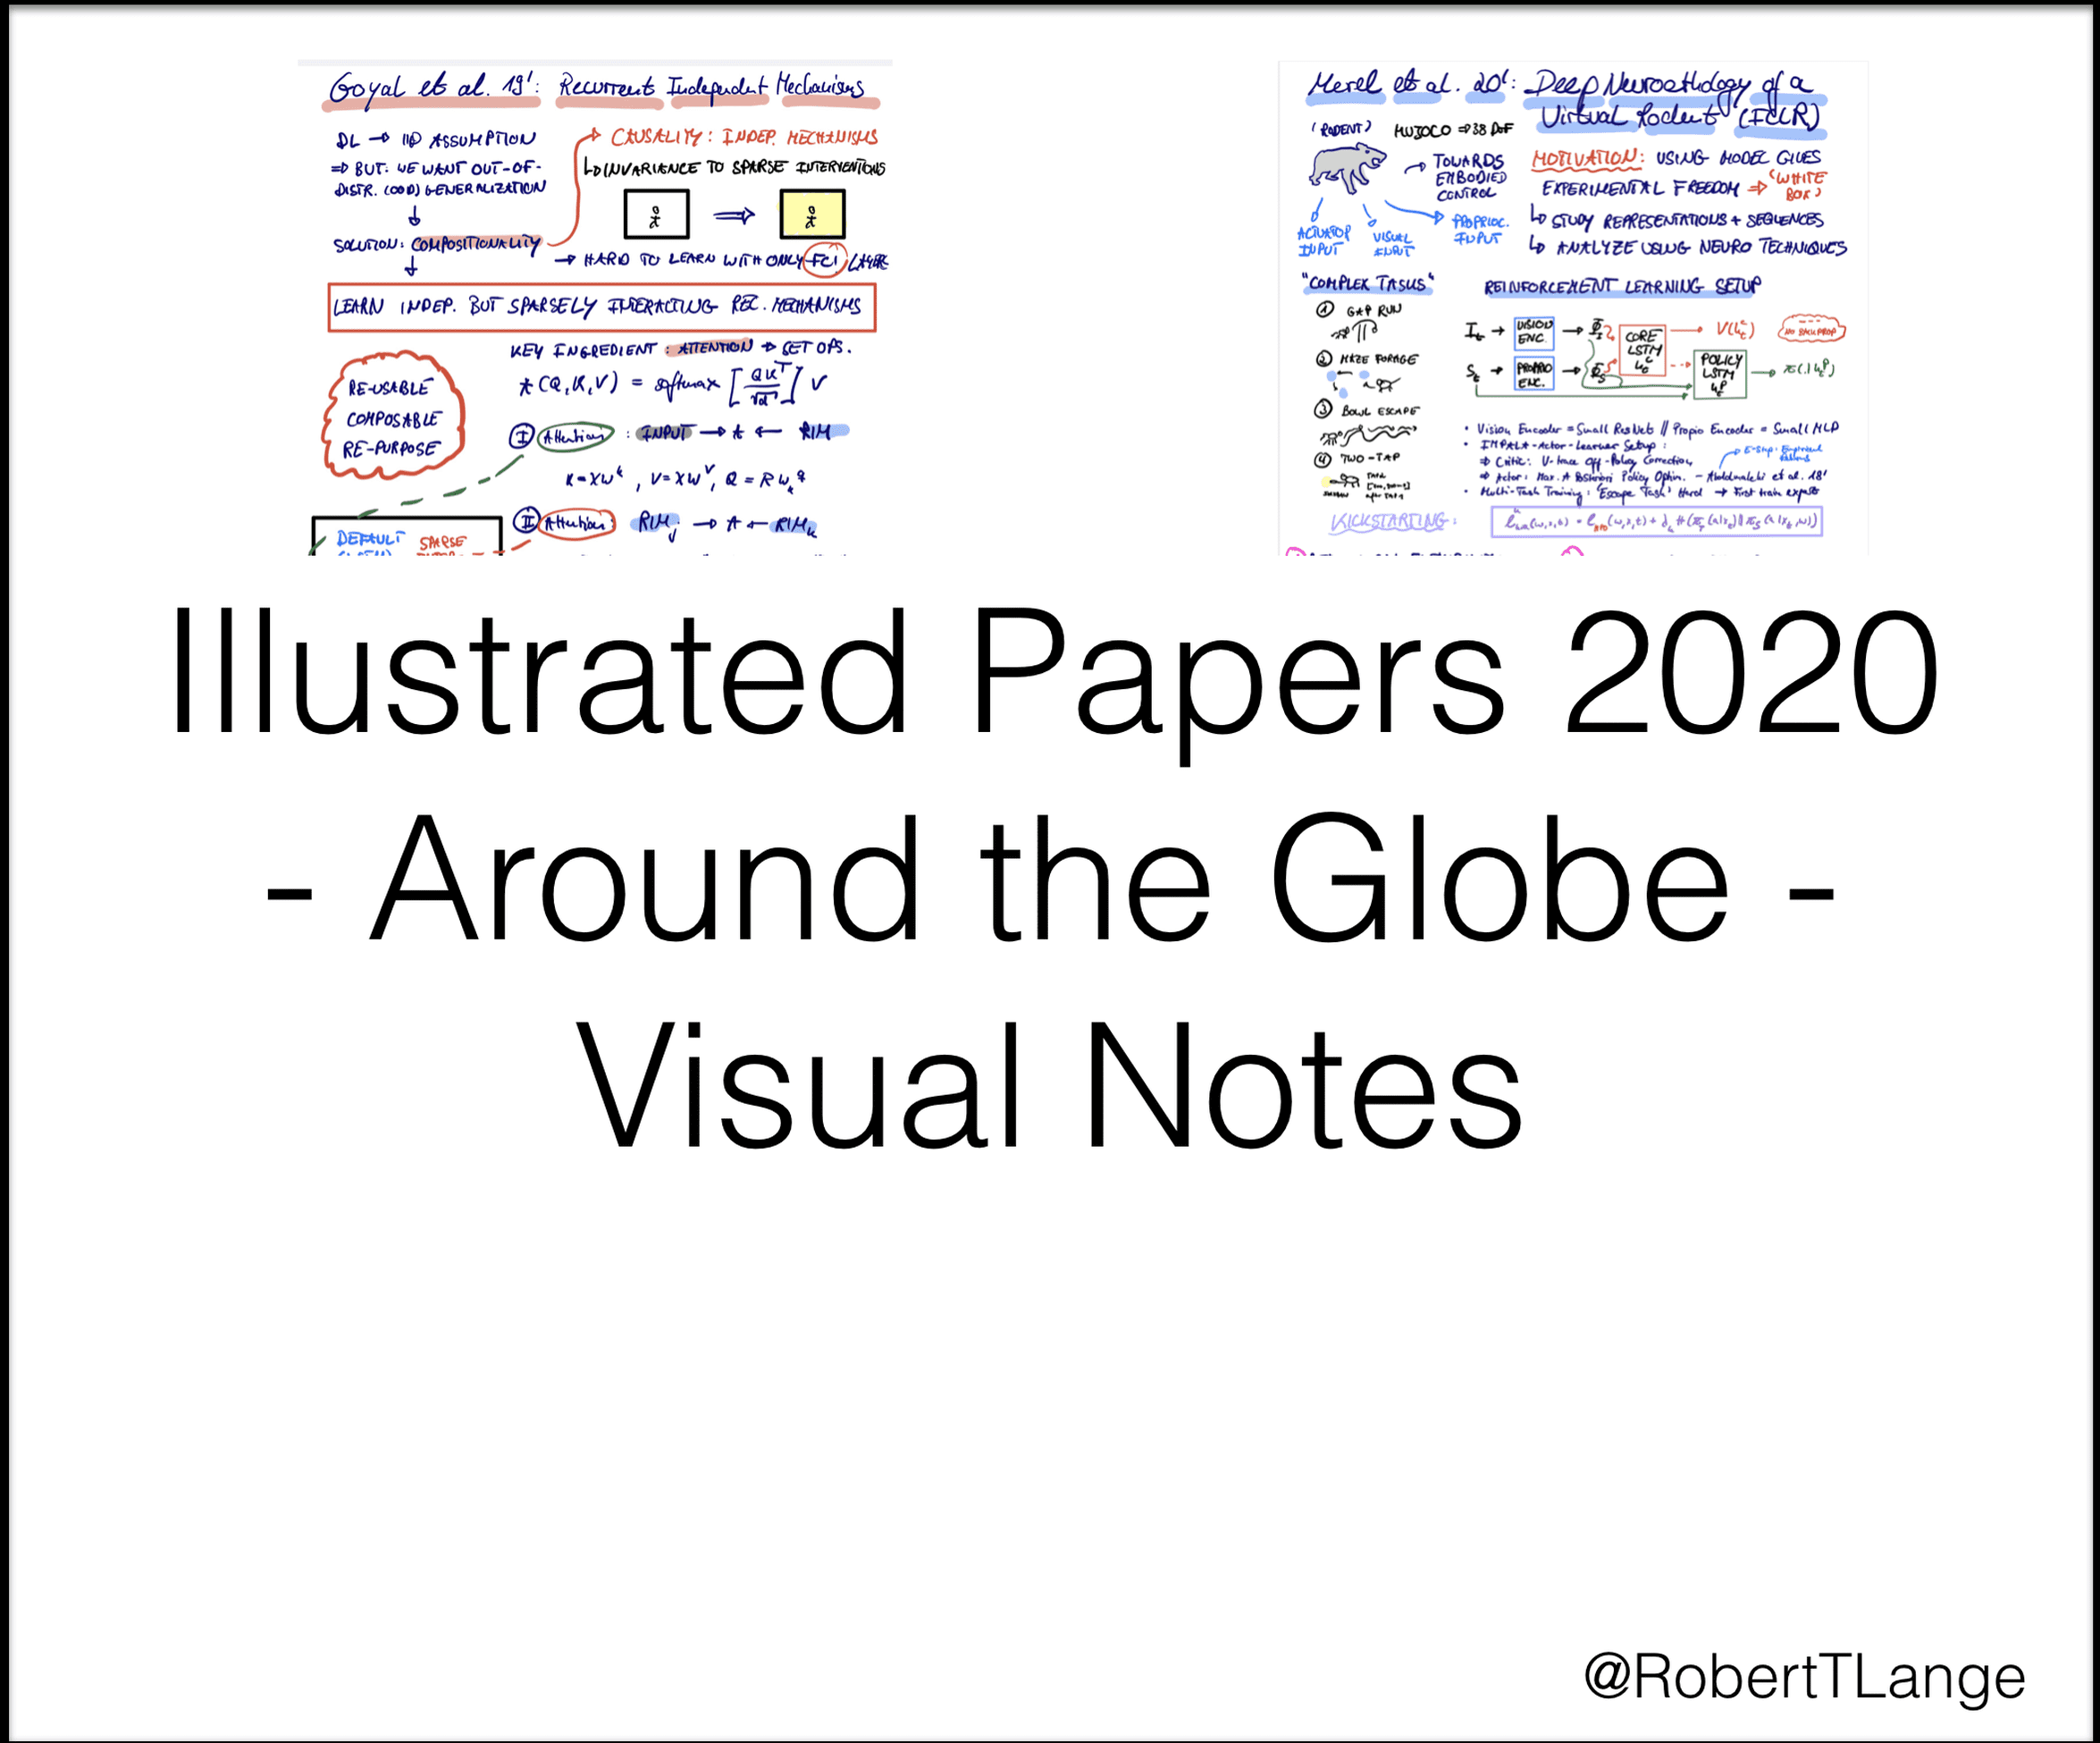 Goyal et al. 19': Recurrent Independent Mechanisms
DL → IID ASSUMPTION
⇒ BUT: WE WANT OUT-OF-
DISTR. (OOD) GENERALIZATION
SOLUTION: COMPOSITIONALITY
CAUSALITY: INDEP. MECHANISMS
↳ INVARIANCE TO SPARSE INTERVENTIONS
→ HARD TO LEARN WITH ONLY FC! LAYER
LEARN INDEP. BUT SPARSELY INTERACTING REC. MECHANISMS
RE-USABLE
COMPOSABLE
RE-PURPOSE
KEY INGREDIENT: ATTENTION → SET OPS.
A(Q,K,V) = softmax [QK^T/√d] V
I Attention: INPUT → A ← RIM
K = XW^k, V = XW^v, Q = RW_k^q
II Attention: RIM_j → A ← RIM_k
DEFAULT
SPARSE
Merel et al. 20': Deep Neuroethology of a
Virtual Rodent (ICLR)
(RODENT)
MUJOCO ⇒ 38 DoF
→ TOWARDS
EMBODIED
CONTROL
ACTUATOR
INPUT
VISUAL
INPUT
PROPRIOC.
INPUT
MOTIVATION: USING MODEL GIVES
EXPERIMENTAL FREEDOM ⇒ 'WHITE
BOX'
↳ STUDY REPRESENTATIONS + SEQUENCES
↳ ANALYZE USING NEURO TECHNIQUES
"COMPLEX TASKS"
1 GAP RUN
2 MAZE FORAGE
3 BOWL ESCAPE
4 TWO-TAP
REINFORCEMENT LEARNING SETUP
I_t → VISION
ENC.
S_t → PROPRIO
ENC.
CORE
LSTM
POLICY
LSTM
NO BACKPROP
• Vision Encoder = Small ResNet // Propio Encoder = Small MLP
• IMPALA-Actor-Learner Setup:
⇒ Critic: V-trace Off-Policy Correction
⇒ Actor: Max. A Posteriori Policy Optim. - Abdolmaleki et al. 18'
• Multi-Task Training: 'Escape Task' Hard → First train expert
KICKSTARTING:
Illustrated Papers 2020
- Around the Globe -
Visual Notes
@RobertTLange